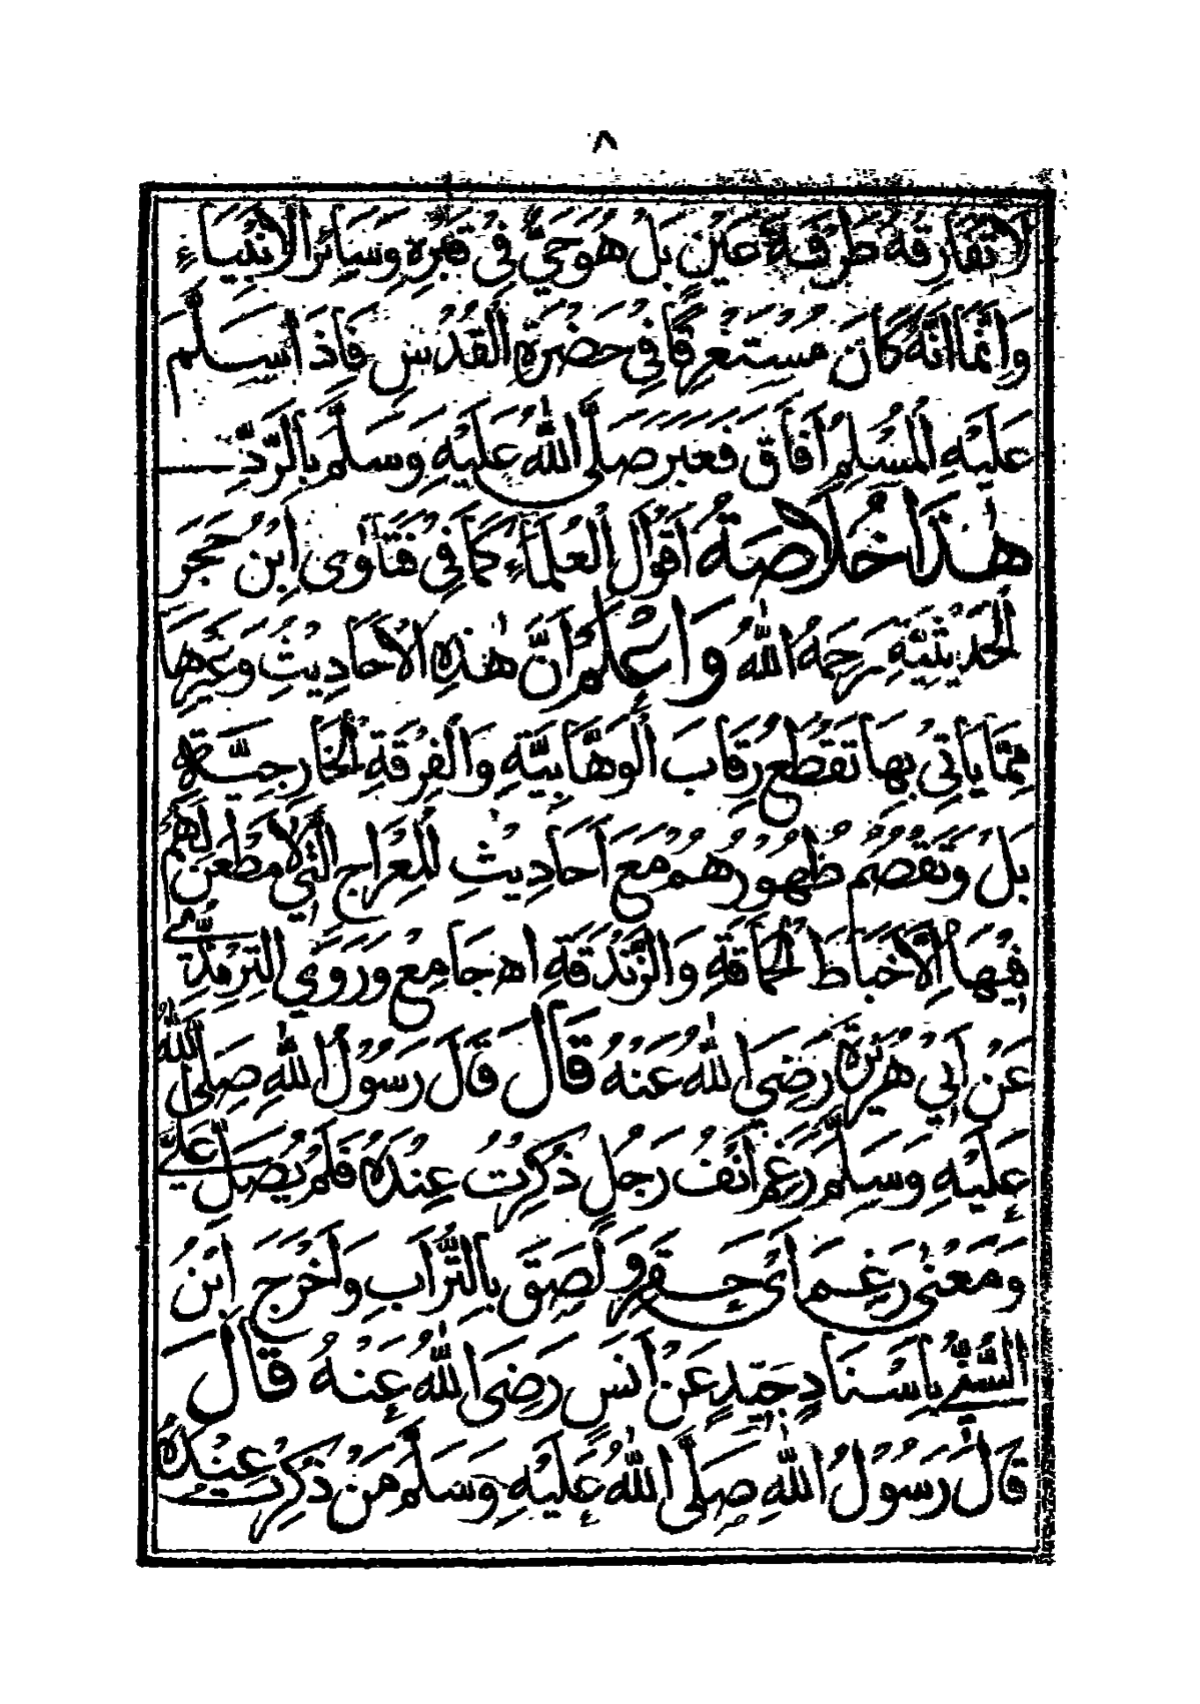 ٨
لَا تُفَارِقُهُ طَرْفَةَ عَيْنٍ بَلْ هُوَ حَيٌّ فِى قَبْرِهِ وَسَائِرُ الْاَنْبِيَاءِ
وَاِنَّمَا اَنَّهُ كَانَ مُسْتَغْرِقًا فِى حَضْرَةِ الْقُدْسِ فَاِذَا سَلَّمَ
عَلَيْهِ الْمُسْلِمُ اَفَاقَ فَعَبَرَ صَلَّى اللهُ عَلَيْهِ وَسَلَّمَ بِالرَّدِّ
هٰذَا خُلَاصَةُ اَقْوَالِ الْعُلَمَاءِ كَمَا فِى فَتَاوَى ابْنِ حَجَرٍ
الْحَدِيْثِيَّةِ رَحِمَهُ اللهُ وَاعْلَمْ اَنَّ هٰذِهِ الْاَحَادِيْثَ وَغَيْرَهَا
مِمَّا يَاْتِى بِهَا تَقْطَعُ رِقَابَ الْوَهَّابِيَّةِ وَالْفِرْقَةِ الْخَارِجِيَّةِ
بَلْ وَتَقْصُمُ ظُهُوْرَهُمْ مَعَ اَحَادِيْثِ الْمِعْرَاجِ الَّتِى لَا مَطْعَنَ لَهُمْ
فِيْهَا اِلَّا خَبَاطُ الْحَمَاقَةِ وَالزَّنْدَقَةِ اهـ جَامِعْ وَرَوَى التِّرْمِذِيُّ
عَنْ اَبِى هُرَيْرَةَ رَضِىَ اللهُ عَنْهُ قَالَ قَالَ رَسُوْلُ اللهِ صَلَّى اللهُ
عَلَيْهِ وَسَلَّمَ رَغِمَ اَنْفُ رَجُلٍ ذُكِرْتُ عِنْدَهُ فَلَمْ يُصَلِّ عَلَيَّ
وَمَعْنٰى رَغِمَ اَىْ حَقُرَ وَلَصِقَ بِالتُّرَابِ وَاَخْرَجَ ابْنُ
السُّنِّيِّ بِاِسْنَادٍ جَيِّدٍ عَنْ اَنَسٍ رَضِىَ اللهُ عَنْهُ قَالَ
قَالَ رَسُوْلُ اللهِ صَلَّى اللهُ عَلَيْهِ وَسَلَّمَ مَنْ ذُكِرْتُ عِنْدَهُ